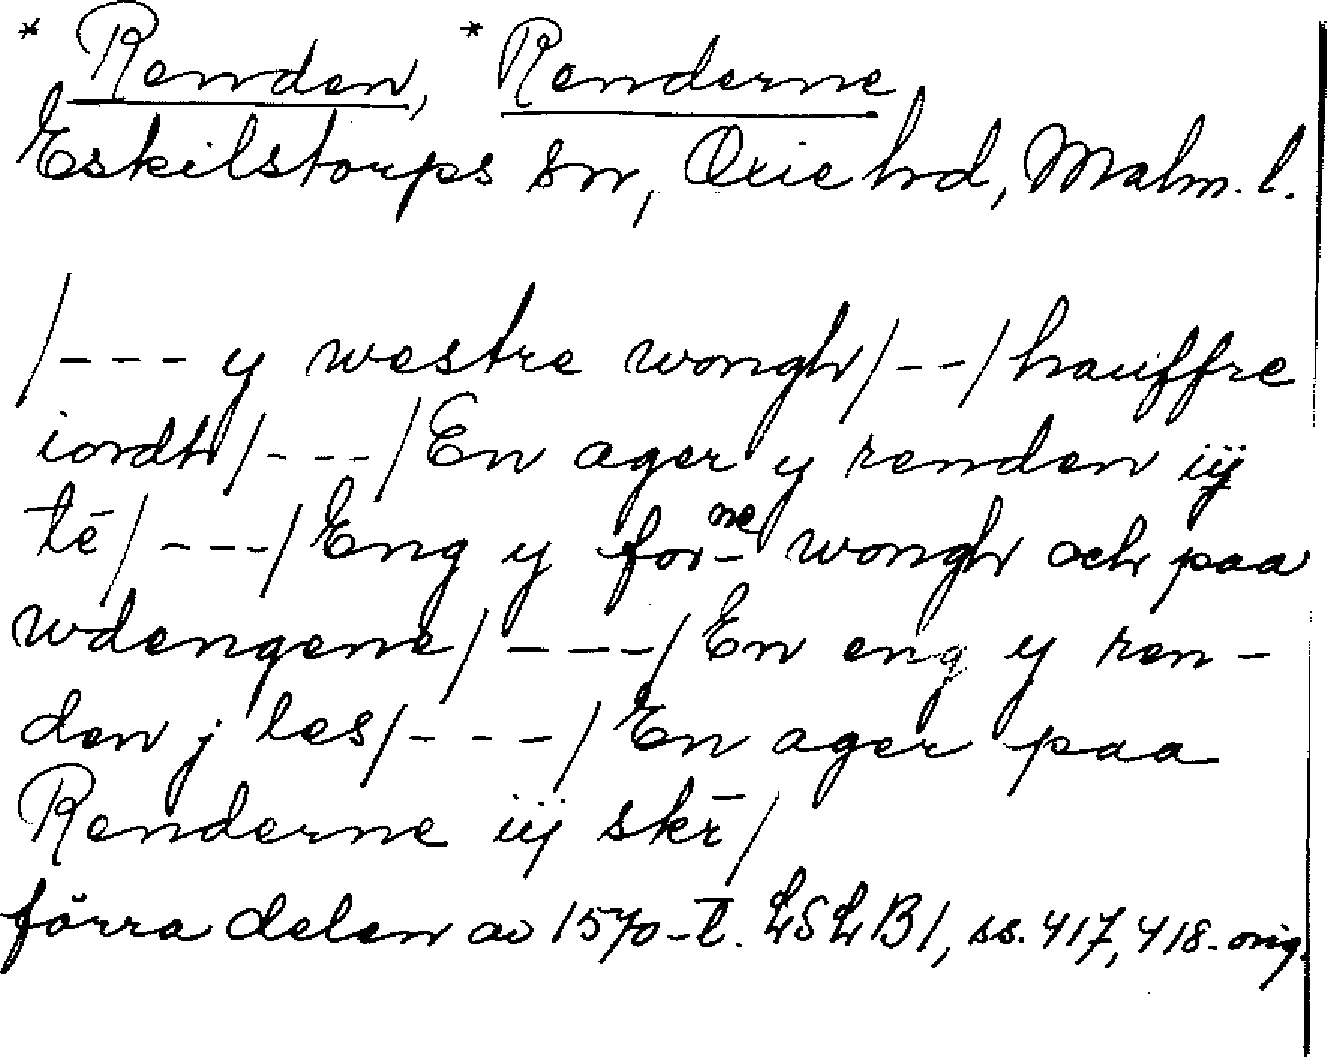 * Renden, * Renderne
Eskilstorps sn, Oxie hd, Malm. l.
/--- y westre wongh/--/hauffre
iordh/---/En ager y renden iÿ
tē/---/Eng y forne wongh och paa
wdengene/---/En eng y ren-
den j les/---/En ager paa
Renderne iij skr̄/
förra delen av 1570-t. LSLB1, ss. 417, 418. orig.